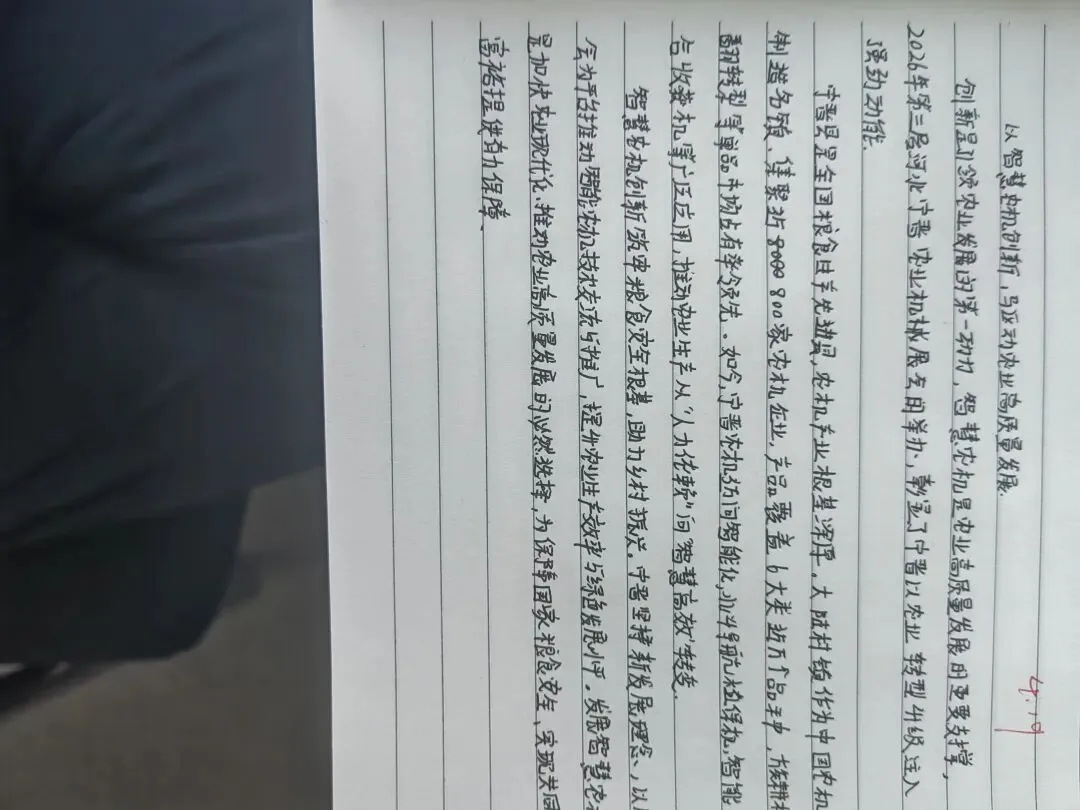 以智慧农机创新,驱动农业高质量发展.
创新是引领农业发展的第一动力,智慧农机是农业高质量发展的重要支撑,
2026年第三届河北宁晋农业机械展会的举办,彰显了宁晋以农业转型升级注入
强劲动能.
宁晋县是全国粮食生产先进县,农机产业根基深厚,大陆村镇作为中国农机
制造名镇、集聚近8000 800家农机企业,产品覆盖6大类近万个品种,旋耕机
翻转犁等单品市场占有率领先。如今,宁晋农机纺问智能化,北斗导航植保机,智能
占收获机等广泛应用,推动农业生产从"人力依赖"向"智慧高效"转变.
智慧农机创新筑牢粮食安全根基,助力乡村振兴。宁晋坚持新发展理念,以
会为平台推动智能农机技术交流与推广,提升农业生产效率与绿色发展水平。发展智慧农
是加快农业现代化、推动农业高质量发展的必然选择,为保障国家粮食安全、实现共同
富裕提供有力保障.
4.19